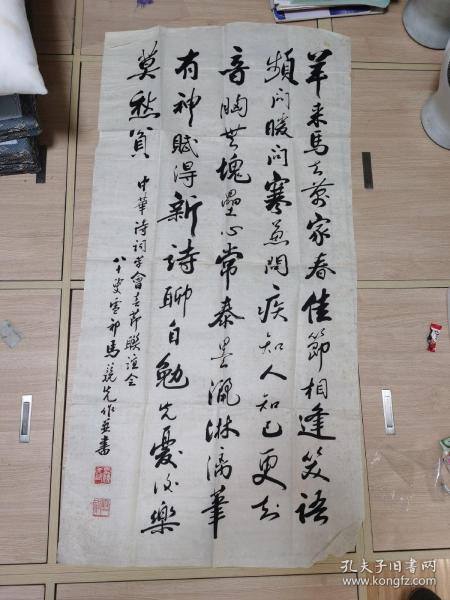 羊来馬去萬家春佳節相逢笑語
頻问暖问寒兼问疾知人知己更知
音胸無塊壘心常泰墨瀋淋漓筆
有神賦得新詩聊自勉先憂後樂
莫愁貧
中華詩詞学會春節联谊会
八十叟雪邨馬競先作並書
孔夫子旧书网
www.kongfz.com